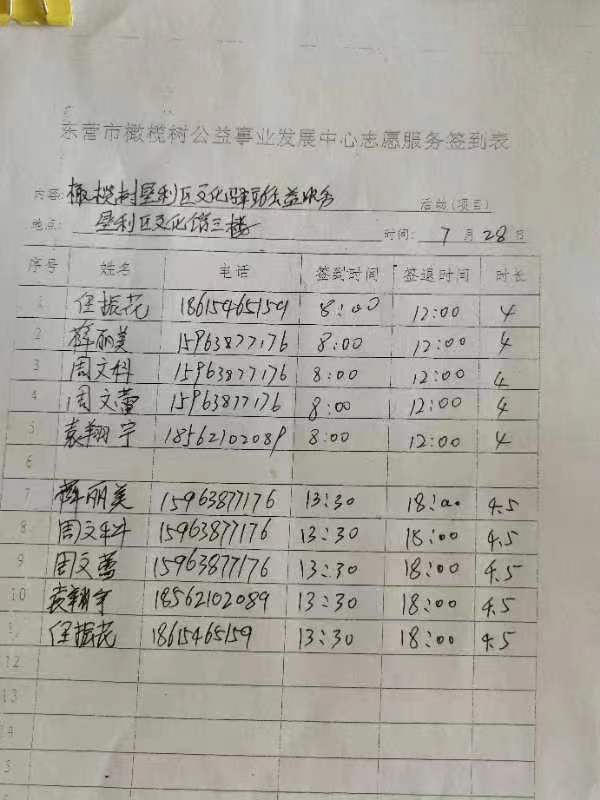 东营市橄榄树公益事业发展中心志愿服务签到表
内容:橄榄树垦利区文化驿站公益服务 活动(项目)
地点:垦利区文化馆三楼 时间:7月28日
序号 姓名 电话 签到时间 签退时间 时长
1 任振花 18615465159 8:00 12:00 4
2 薛丽美 15963877176 8:00 12:00 4
3 周文科 15963877176 8:00 12:00 4
4 周文蕾 15963877176 8:00 12:00 4
5 袁翔宇 18562102089 8:00 12:00 4
6
7 薛丽美 15963877176 13:30 18:00 4.5
8 周文科 15963877176 13:30 18:00 4.5
9 周文蕾 15963877176 13:30 18:00 4.5
10 袁翔宇 18562102089 13:30 18:00 4.5
任振花 18615465159 13:30 18:00 4.5
12
13